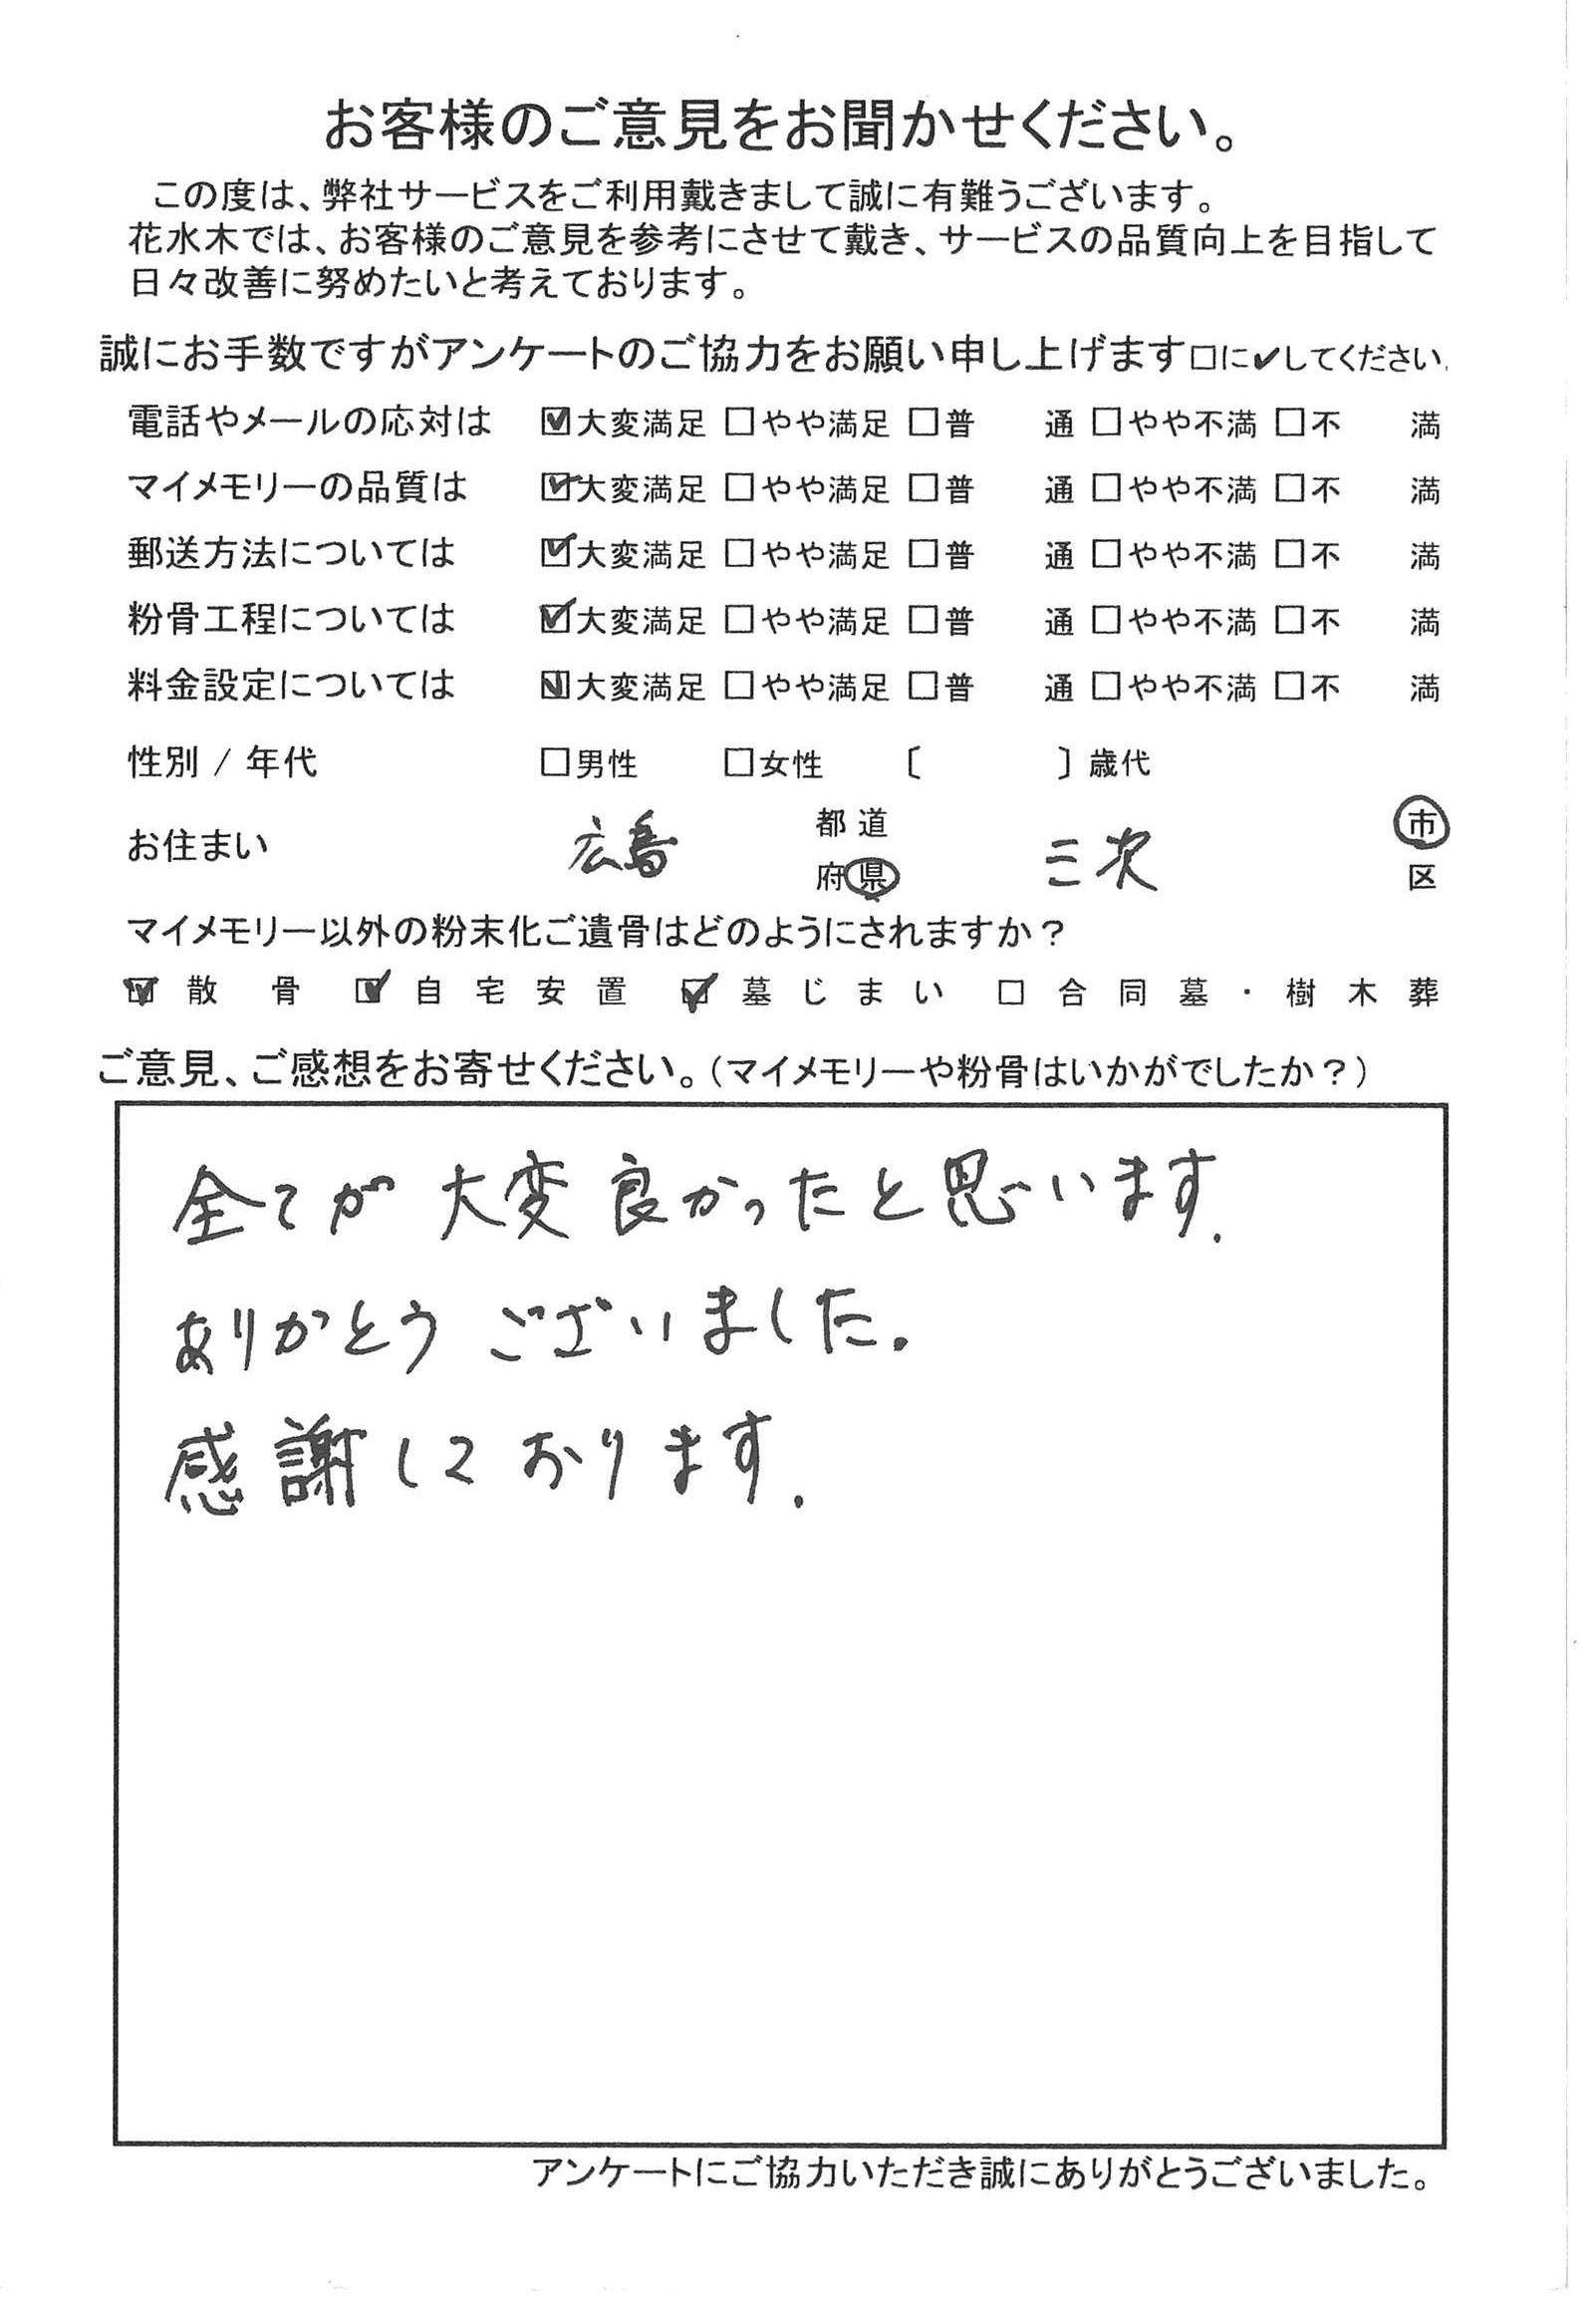 お客様のご意見をお聞かせください。
この度は、弊社サービスをご利用戴きまして誠に有難うございます。
花水木では、お客様のご意見を参考にさせて戴き、サービスの品質向上を目指して
日々改善に努めたいと考えております。
誠にお手数ですがアンケートのご協力をお願い申し上げます□に✔してください.
電話やメールの応対は ☑大変満足 □やや満足 □普 通 □やや不満 □不 満
マイメモリーの品質は ☑大変満足 □やや満足 □普 通 □やや不満 □不 満
郵送方法については ☑大変満足 □やや満足 □普 通 □やや不満 □不 満
粉骨工程については ☑大変満足 □やや満足 □普 通 □やや不満 □不 満
料金設定については ☑大変満足 □やや満足 □普 通 □やや不満 □不 満
性別 / 年代 □男性 □女性 〔 〕歳代
お住まい 広島 都道府県 三次 市区
マイメモリー以外の粉末化ご遺骨はどのようにされますか？
☑ 散骨 ☑ 自宅安置 ☑ 墓じまい □ 合同墓・樹木葬
ご意見、ご感想をお寄せください。（マイメモリーや粉骨はいかがでしたか？）
全てが大変良かったと思います.
ありがとうございました.
感謝しております.
アンケートにご協力いただき誠にありがとうございました。